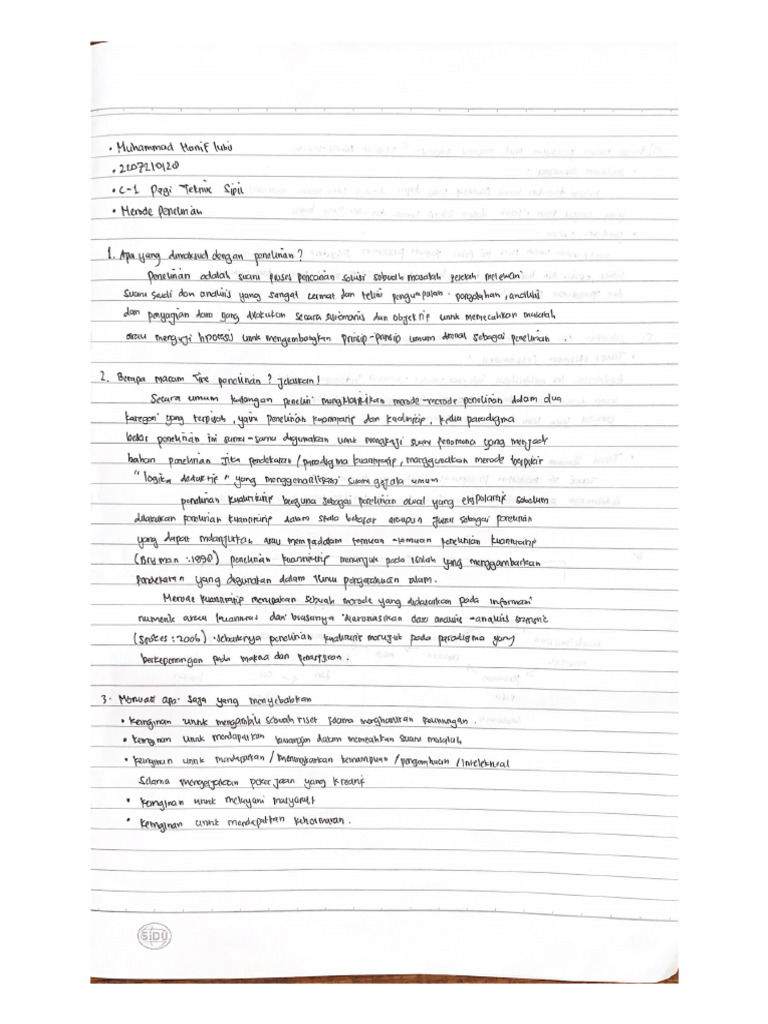 • Muhammad Hanif lubis
• 2207210120
• C-1 Pagi Teknik Sipil
• Metode Penelitian
1. Apa yang dimaksud dengan penelitian?
Penelitian adalah suatu proses pencarian solusi sebuah masalah setelah melewati
suatu studi dan analisis yang sangat cermat dan teliti pengumpulan. pengolahan, analisis
dan penyajian data yang dilakukan secara sistematis dan objektif untuk memecahkan masalah
atau menguji hipotesis untuk mengembangkan prinsip-prinsip umum sebagai penelitian.
2. Berapa macam Tipe penelitian? Jelaskan!
Secara umum kalangan peneliti mengklasifikan metode-metode penelitian dalam dua
kategori yang terpisah, yaitu penelitian kuantitatif dan kualitatif, kedua paradigma
besar penelitian ini sama-sama digunakan untuk mengkaji suatu fenomena yang menjadi
bahan penelitian jika pendekatan/paradigma kuantitatif, menggunakan metode berpikir
"logika deduktif" yang menggeneralisasi suatu gejala umum
penelitian kualitatif berguna sebagai penelitian awal yang eksploratif sebelum
dilakukan penelitian kuantitatif dalam skala besar ataupun justru sebagai penelitian
yang dapat melanjutkan atau memperdalam temuan-temuan penelitian kuantitatif
(Bryman : 1890) penelitian kuantitatif menunjuk pada istilah yang menggambarkan
pendekatan yang digunakan dalam ilmu pengetahuan alam.
Metode kuantitatif merupakan sebuah metode yang didasarkan pada informasi
numerik atau kuantitas dan biasanya diasosiasikan dari analisis-analisis
(Stokes : 2006). sebaliknya penelitian kualitatif merujuk pada paradigma yang
berkepentingan pada makna dan penafsiran.
3. Motivasi apa saja yang menyebabkan
• Keinginan untuk mengambil sebuah riset
• Keinginan untuk mendapatkan tantangan dalam memecahkan suatu masalah
• Keinginan untuk mendapatkan / meningkatkan kemampuan / pengetahuan / Intelektual
Selama mengerjakan pekerjaan yang kreatif
• Keinginan untuk melayani masyarakat
• Keinginan untuk mendapatkan kehormatan.
SIDU